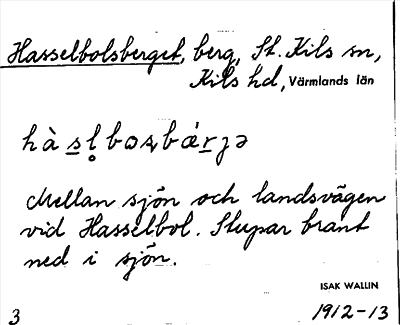 Hasselbolsberget, berg, St. Kils sn,
Kils hd, Värmlands län
Mellan sjön och landsvägen
vid Hasselbol. Stupar brant
ned i sjön.
ISAK WALLIN
3 1912-13